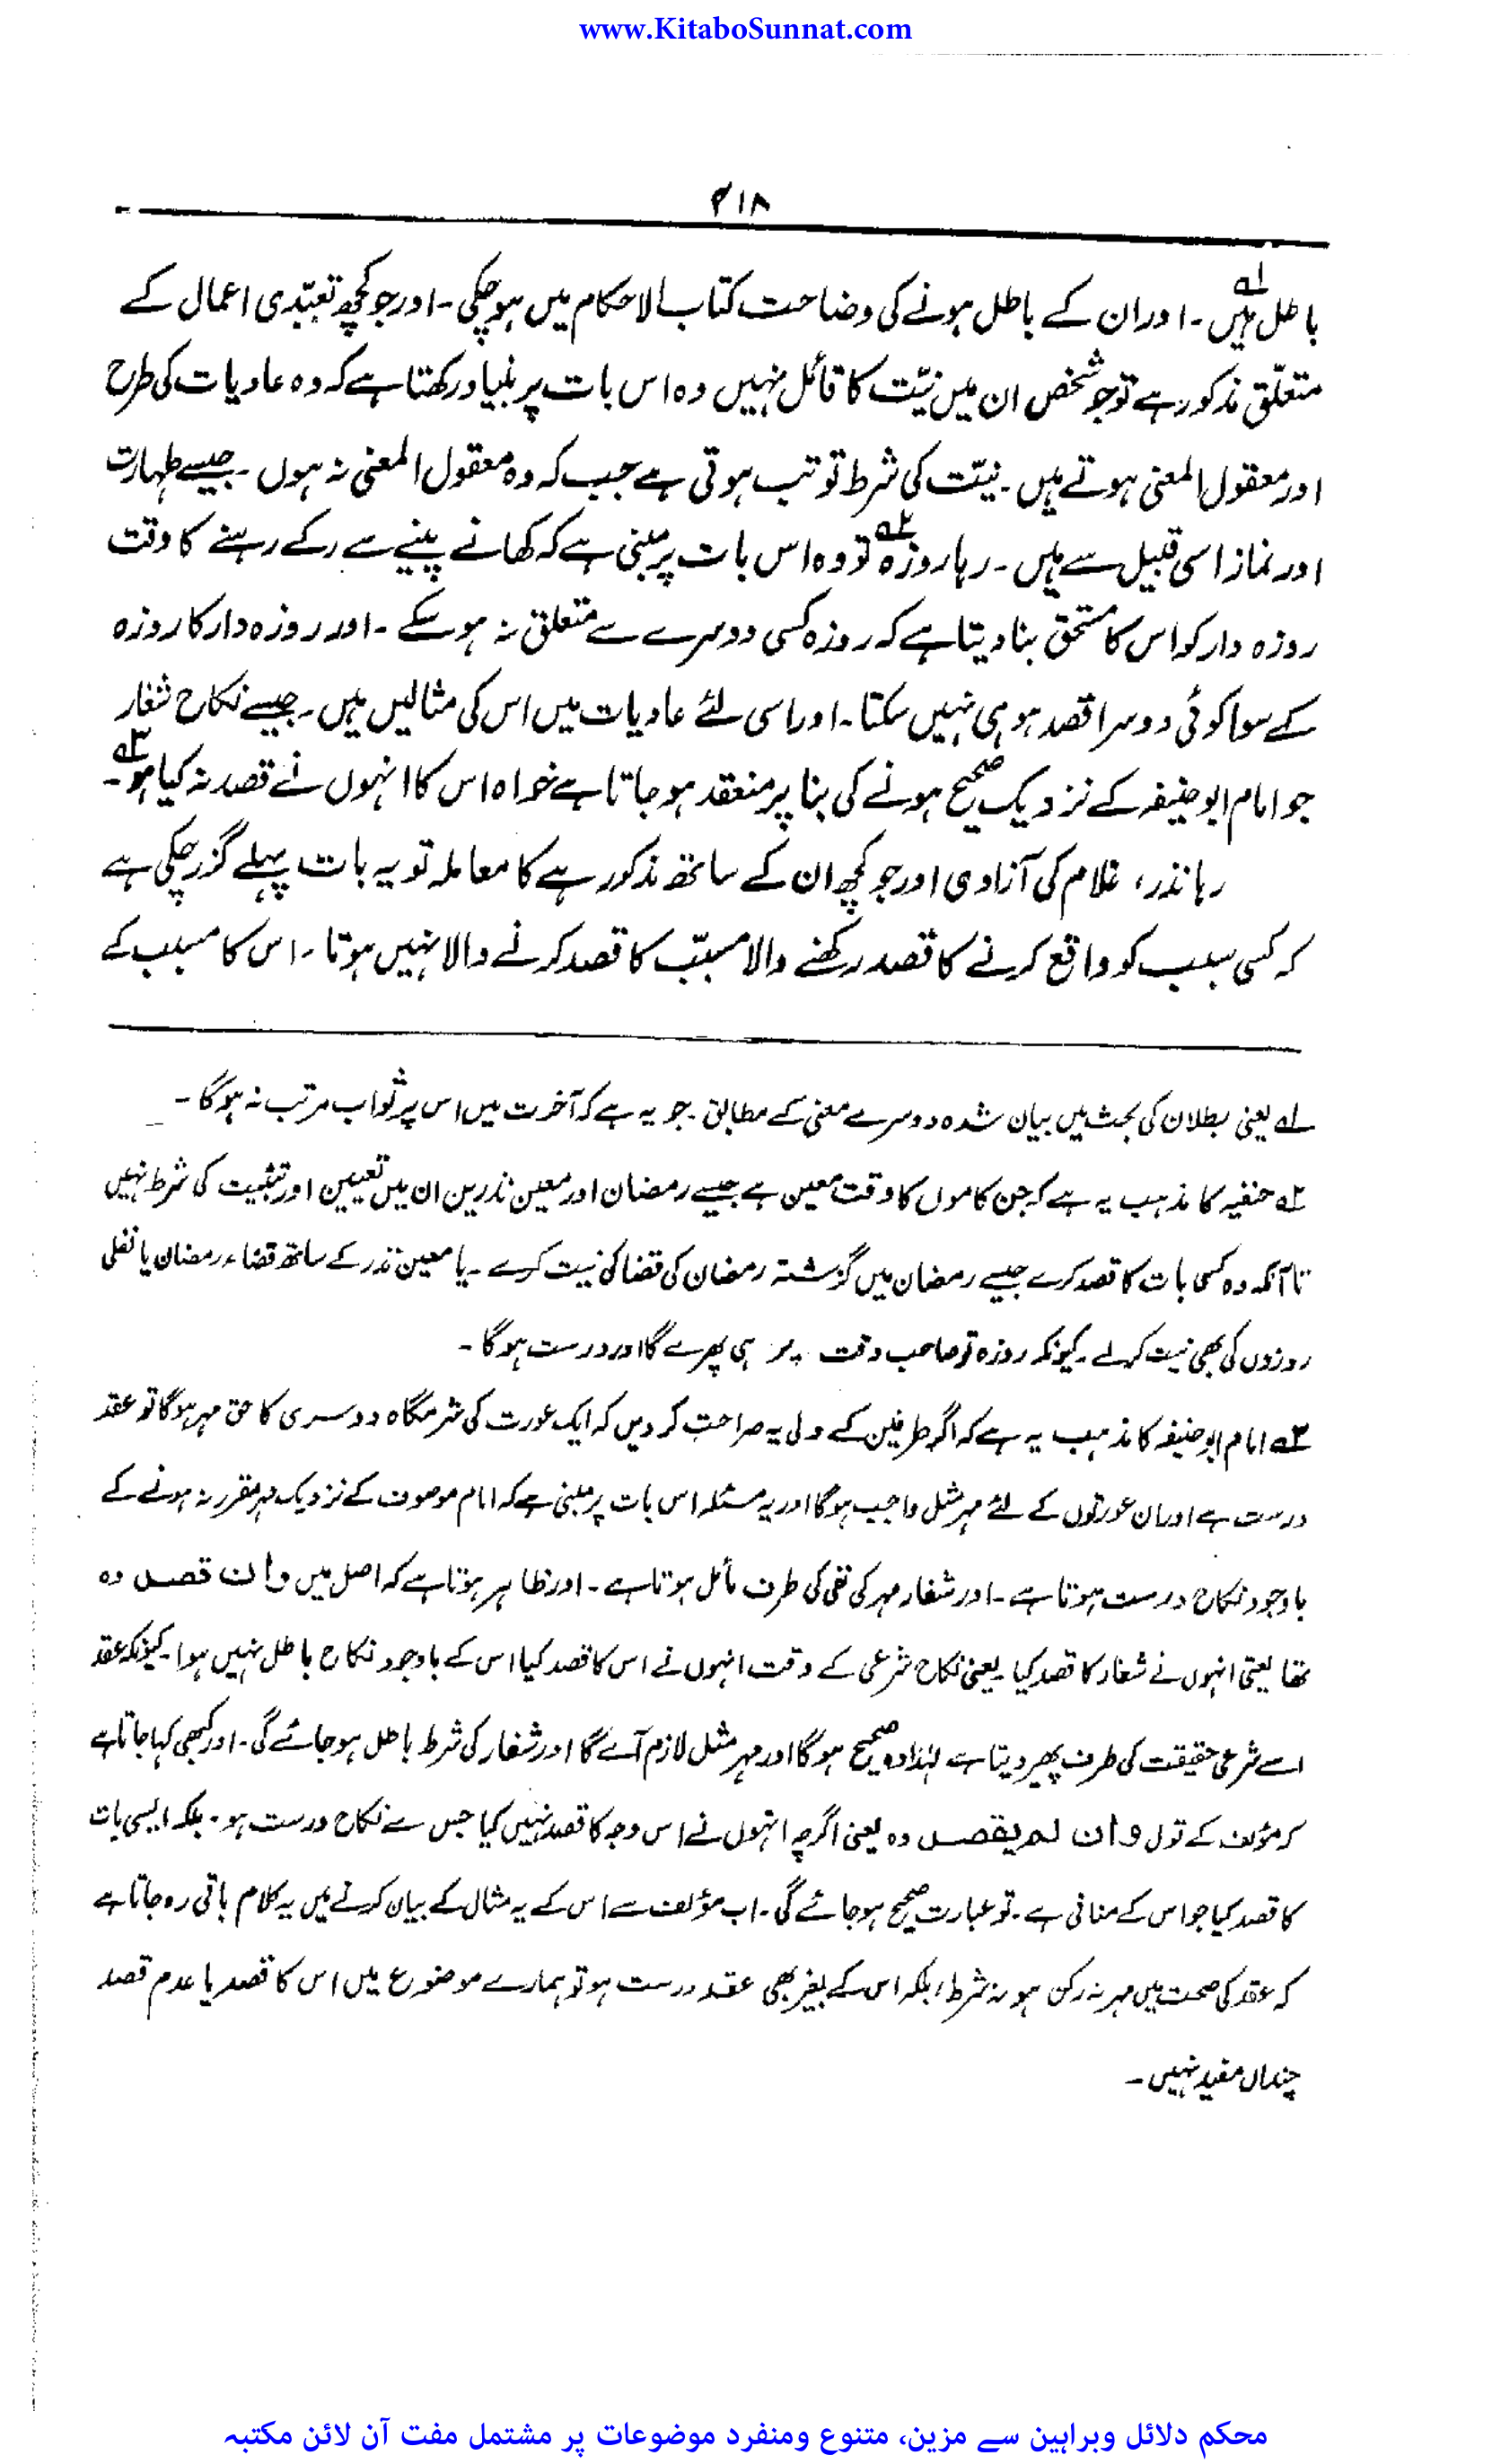 www.KitaboSunnat.com
۴۱۸
باطل ہیں۱؎۔ اوران کے باطل ہونے کی وضاحت کتاب الاحکام میں ہوچکی۔ اورجو کچھ تعبّدی اعمال کے
متعلّق مذکور ہے تو جو شخص ان میں نیّت کا قائل نہیں وہ اس بات پر بنیاد رکھتا ہے کہ وہ عادیات کی طرح
اور معقول المعنی ہوتے ہیں۔ نیّت کی شرط تو تب ہوتی ہے جب کہ وہ معقول المعنی نہ ہوں۔ جیسے طہارت
اور نماز اسی قبیل سے ہیں۔ رہا روزہ۲؎ تو وہ اس بات پر مبنی ہے کہ کھانے پینے سے رکے رہنے کا وقت
روزہ دار کو اس کا مستحق بنا دیتا ہے کہ روزہ کسی دوسرے سے متعلق نہ ہوسکے۔ اور روزہ دار کا روزہ
کے سوا کوئی دوسرا قصد ہو ہی نہیں سکتا۔ اوراسی لئے عادیات میں اس کی مثالیں ہیں۔ جیسے نکاح شغار
جو امام ابوحنیفہ کے نزدیک صحیح ہونے کی بنا پر منعقد ہو جاتا ہے خواہ اس کا انہوں نے قصد نہ کیا ہو۳؎۔
رہا نذر، غلام کی آزادی اور جو کچھ ان کے ساتھ مذکور ہے کا معاملہ تو یہ بات پہلے گزر چکی ہے
کہ کسی سبب کو واقع کرنے کا قصد رکھنے والا مسبّب کا قصد کرنے والا نہیں ہوتا۔ اس کا مسبب کے
۱؎ یعنی بطلان کی بحث میں بیان شدہ دوسرے معنی کے مطابق۔ جو یہ ہے کہ آخرت میں اس پر ثواب مرتب نہ ہوگا۔
۲؎ حنفیہ کا مذہب یہ ہے کہ جن کاموں کا وقت معین ہے جیسے رمضان اور معین نذریں ان میں تعیین اور تثبیت کی شرط نہیں
تاآنکہ وہ کسی بات کا قصد کرے جیسے رمضان میں گزشتہ رمضان کی قضا کی نیت کرے۔ یا معین نذر کے ساتھ قضاء رمضان یا نفلی
روزوں کی بھی نیت کرلے۔ کیونکہ روزہ تو صاحب وقت پر ہی پھرے گا اور درست ہوگا۔
۳؎ امام ابوحنیفہ کا مذہب یہ ہے کہ اگر طرفین کے ولی یہ صراحت کر دیں کہ ایک عورت کی شرمگاہ دوسری کا حق مہر ہوگا تو عقد
درست ہے اور ان عورتوں کے لئے مہر مثل واجب ہوگا اور یہ مسئلہ اس بات پر مبنی ہے کہ امام موصوف کے نزدیک مہر مقرر نہ ہونے کے
باوجود نکاح درست ہوتا ہے۔ اور شغار مہر کی نفی کی طرف مائل ہوتا ہے۔ اور ظاہر ہوتا ہے کہ اصل میں وان قصد وہ
تھا یعنی انہوں نے شغار کا قصد کیا۔ یعنی نکاح شرعی کے وقت انہوں نے اس کا قصد کیا اس کے باوجود نکاح باطل نہیں ہوا۔ کیونکہ عقد
اسے شرعی حقیقت کی طرف پھیر دیتا ہے لہٰذا وہ صحیح ہوگا اور مہر مثل لازم آئے گا اور شغار کی شرط باطل ہو جائے گی۔ اور کبھی کہا جاتا ہے
کہ مؤلف کے قول وان لم یقصد وہ یعنی اگرچہ انہوں نے اس وجہ کا قصد نہیں کیا جس سے نکاح درست ہو۔ بلکہ ایسی بات
کا قصد کیا جو اس کے منافی ہے۔ تو عبارت صحیح ہو جائے گی۔ اب مؤلف سے اس کے یہ مثال کے بیان کرنے میں یہ کلام باقی رہ جاتا ہے
کہ عقد کی صحت میں مہر نہ رکن ہو نہ شرط، بلکہ اس کے بغیر بھی عقد درست ہو تو ہمارے موضوع میں اس کا قصد یا عدم قصد
چنداں مفید نہیں۔
محکم دلائل وبراہین سے مزین، متنوع ومنفرد موضوعات پر مشتمل مفت آن لائن مکتبہ